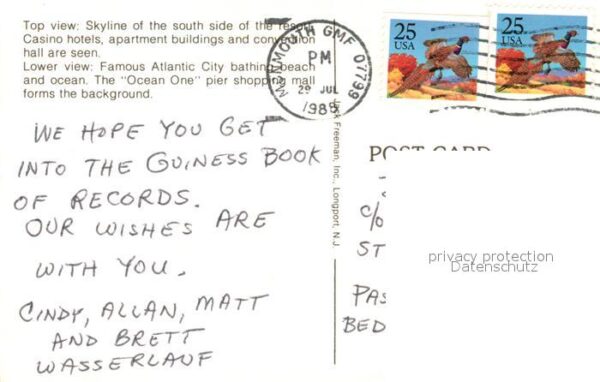 Top view: Skyline of the south side of the resort.
Casino hotels, apartment buildings and convention
hall are seen.
Lower view: Famous Atlantic City bathing beach
and ocean. The "Ocean One" pier shopping mall
forms the background.
MONMOUTH GMF 07799
PM
29 JUL
1989
25
USA
25
USA
WE HOPE YOU GET
INTO THE GUINESS BOOK
OF RECORDS.
OUR WISHES ARE
WITH YOU.
CINDY, ALLAN, MATT
AND BRETT
WASSERLAUF
Jack Freeman, Inc., Longport, N.J.
POST CARD
C/O
ST
PAS
BED
privacy protection
Datenschutz